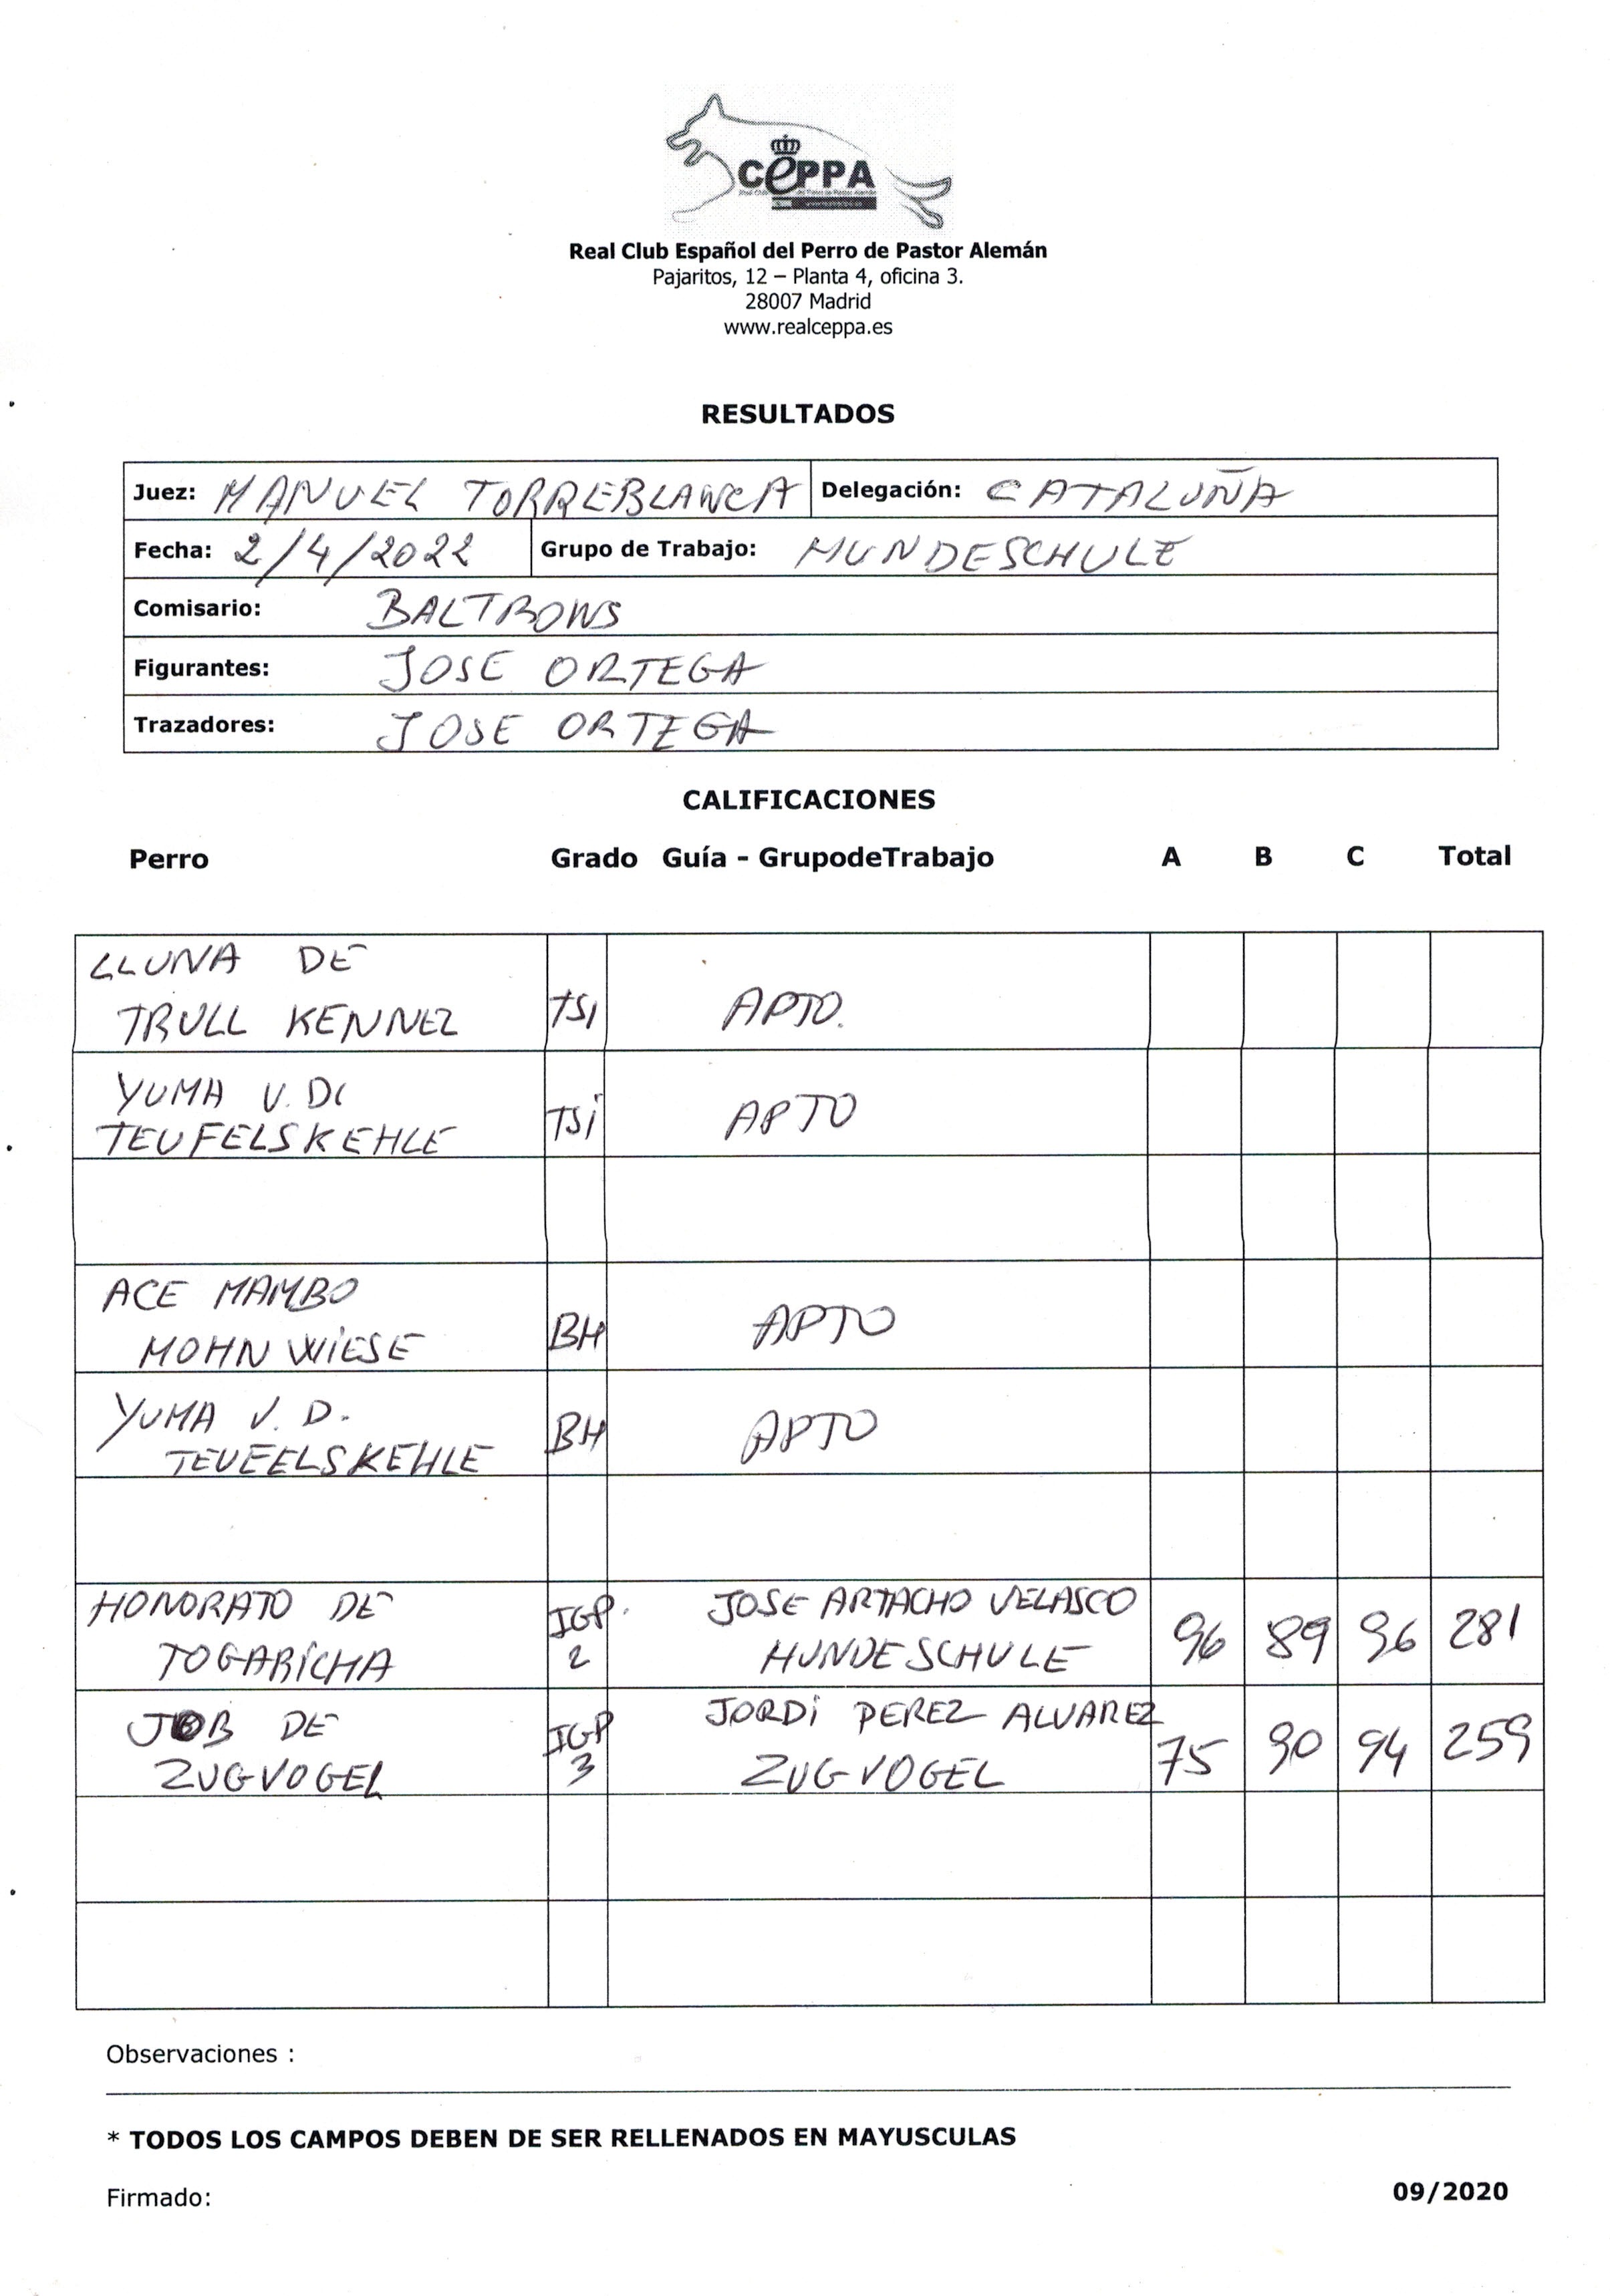 CEPPA
Real Club Español del Perro de Pastor Alemán
Pajaritos, 12 – Planta 4, oficina 3.
28007 Madrid
www.realceppa.es
RESULTADOS
Juez: MANUEL TORREBLANCA Delegación: CATALUÑA
Fecha: 2/4/2022 Grupo de Trabajo: HUNDESCHULE
Comisario: BALTRONS
Figurantes: JOSE ORTEGA
Trazadores: JOSE ORTEGA
CALIFICACIONES
Perro Grado Guía - GrupodeTrabajo A B C Total
LLUNA DE
TRULL KENNEL TSI APTO.
YUMA V. D.
TEUFELSKEHLE TSi APTO
ACE MAMBO
MOHNWIESE BH APTO
YUMA V. D.
TEUFELSKEHLE BH APTO
HONORATO DE IGP. JOSE ARTACHO VELASCO
TOGARICHA 2 HUNDESCHULE 96 89 96 281
JOB DE IGP JORDI PEREZ ALVAREZ
ZUGVOGEL 3 ZUGVOGEL 75 90 94 259
Observaciones :
* TODOS LOS CAMPOS DEBEN DE SER RELLENADOS EN MAYUSCULAS
Firmado: 09/2020